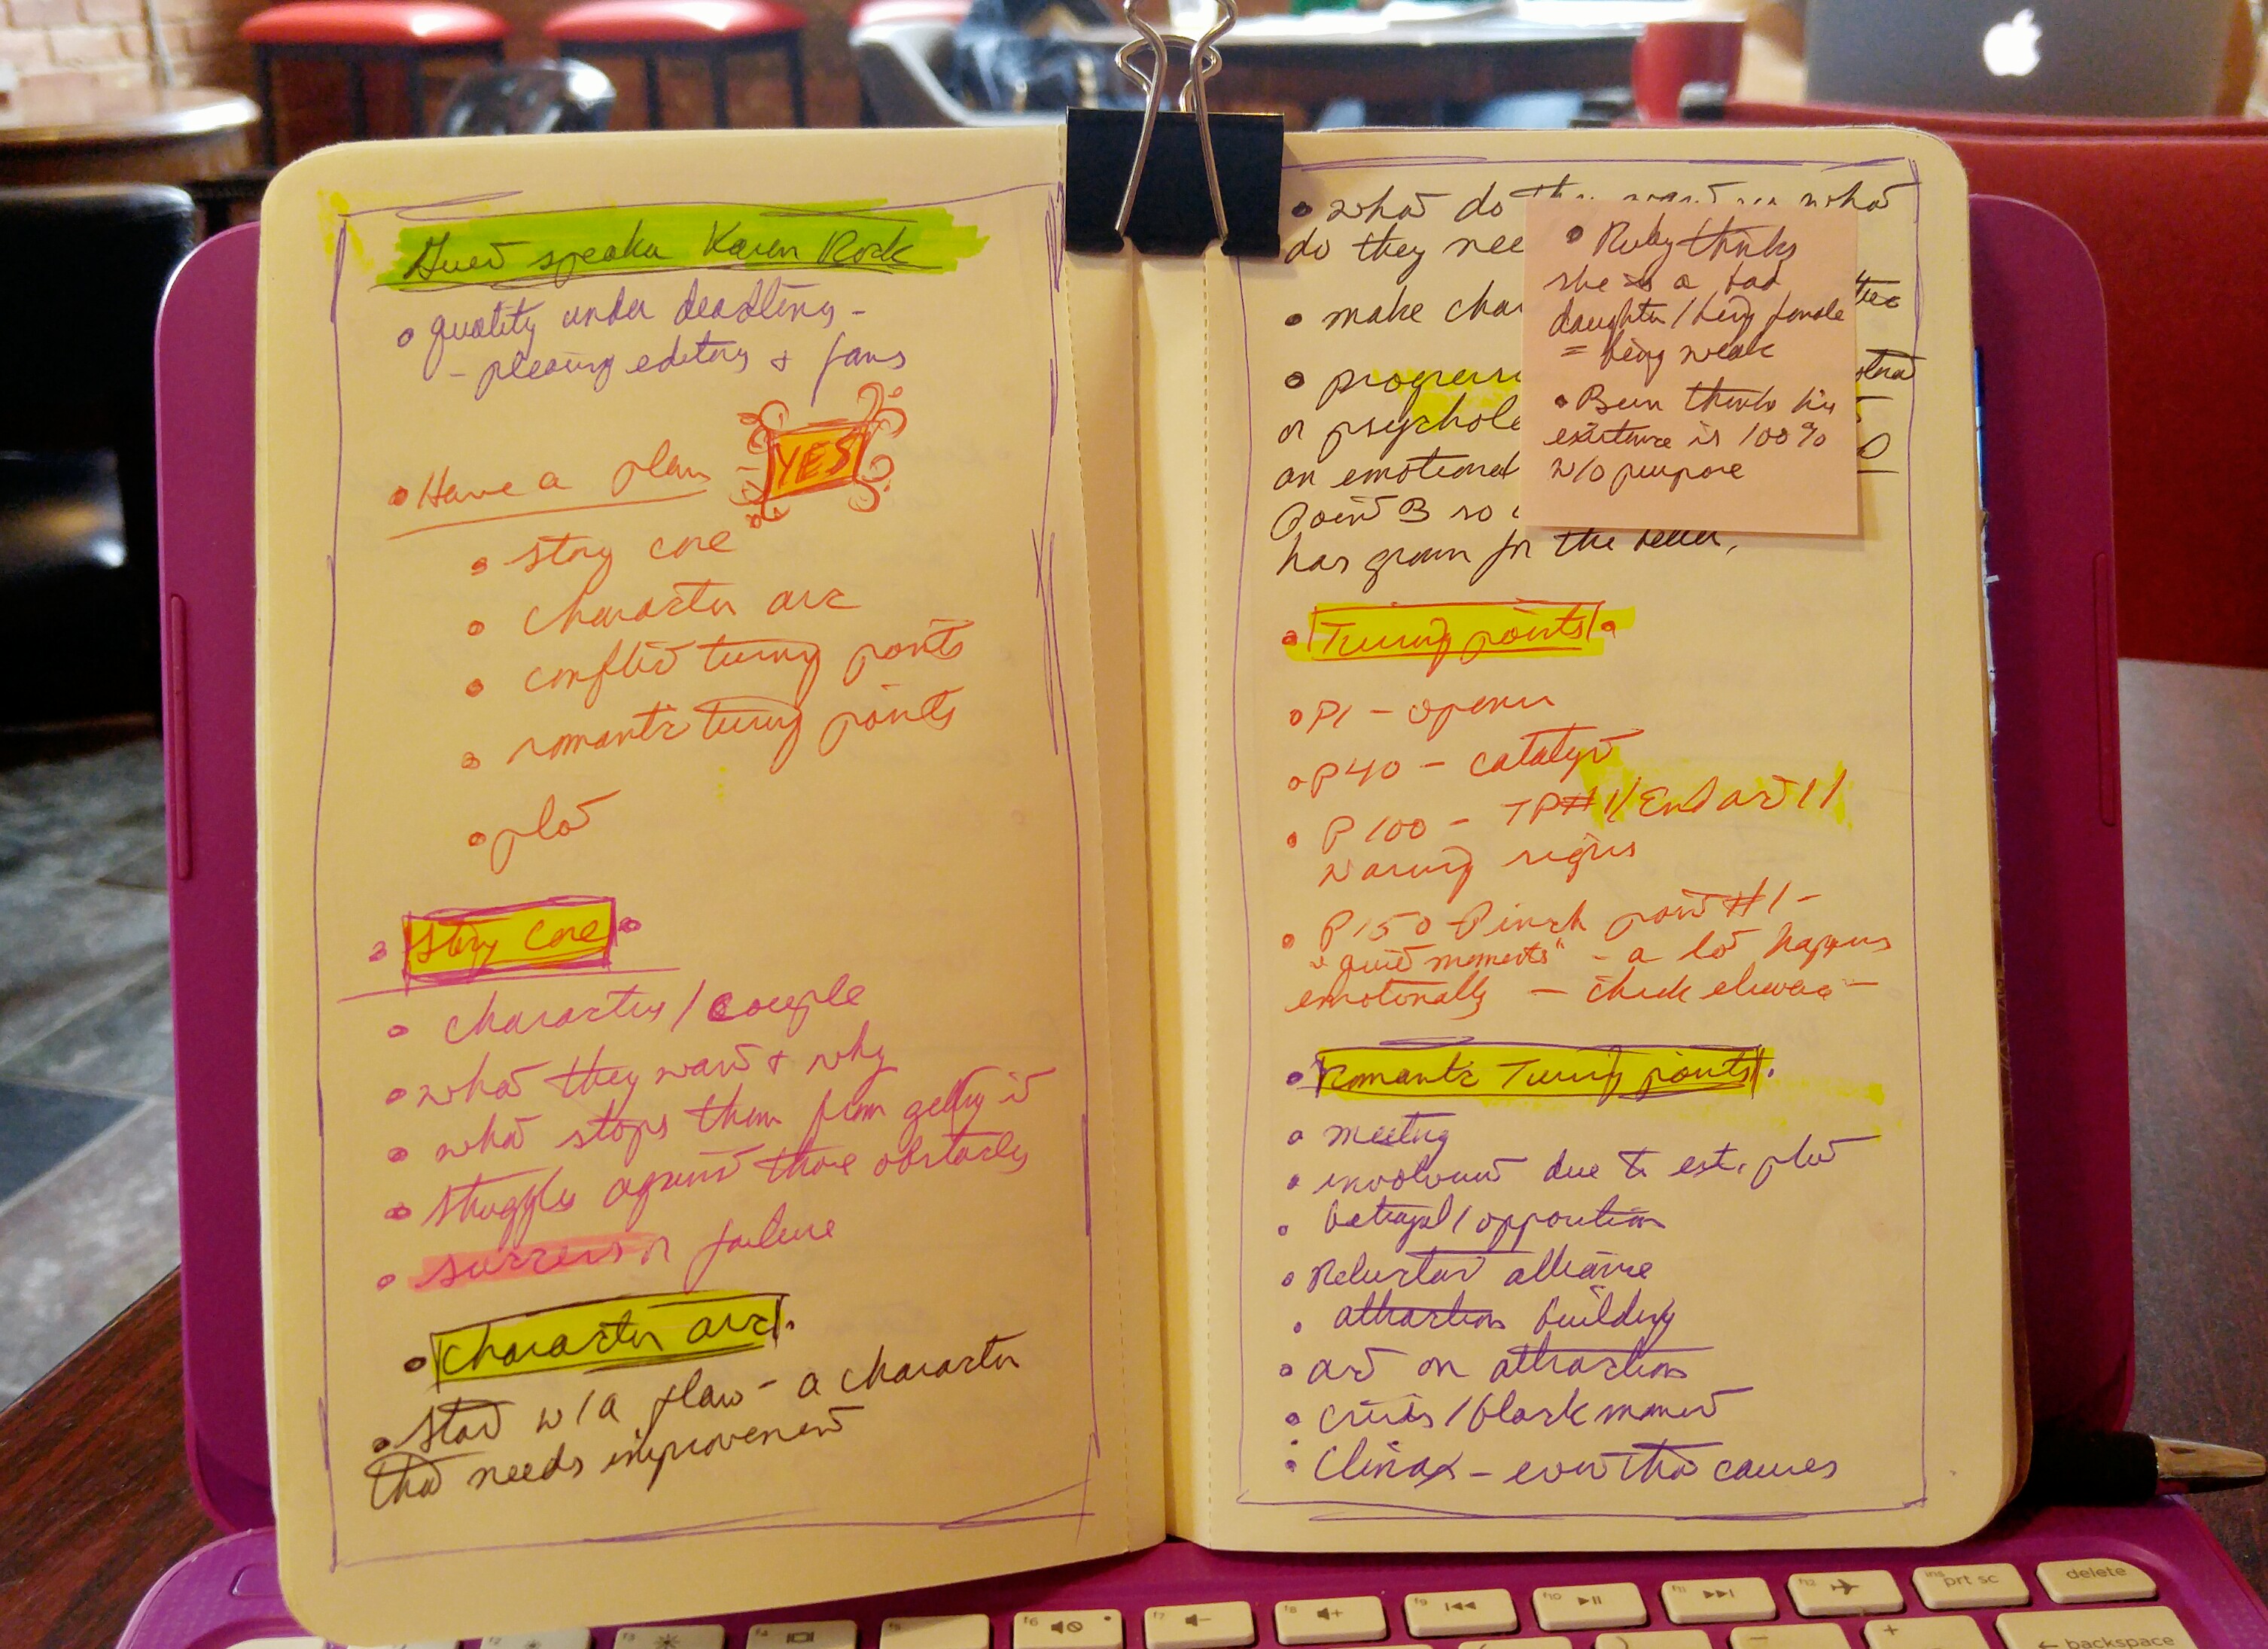 Guest speaker Karen Rock
• quality under deadlines -
- pleasing editors & fans
• Have a plan - YES!
• story core
• character arc
• conflict turning points
• romantic turning points
• plot
• Story Core •
• characters / couple
• what they want & why
• what stops them from getting it
• struggles against those obstacles
• success or failure
• Character arc •
• Start w/ a flaw - a character
that needs improvement
• what do they want vs what
do they nee
• make char
• progress
or psychole
an emotional
Point B so
has grown for the better.
• Ruby thinks
she is a bad
daughter / being female
= being weak
• Ben thinks his
existence is 100%
w/o purpose
• Turning points •
• P1 - opener
• P40 - catalyst
• P100 - TP#1/End act 1
warning signs
• P150 Pinch point #1 -
"quiet moments" - a lot happens
emotionally - check
• Romantic Turning points •
• meeting
• involvement due to est. plot
• betrayal / opposition
• Reluctant alliance
• attraction building
• act on attraction
• crisis / black moment
• Climax - event that causes
f6
f7
f8
f9
f10
f11
f12
ins
prt sc
delete
← backspace